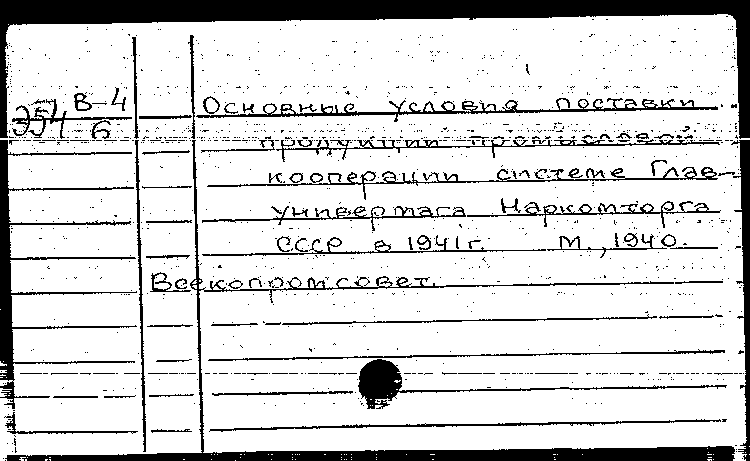 В-4
Э54 6
Основные условия поставки
продукции промысловой
кооперации системе Глав-
универмага Наркомторга
СССР в 1941 г. М., 1940.
Всекопромсовет.